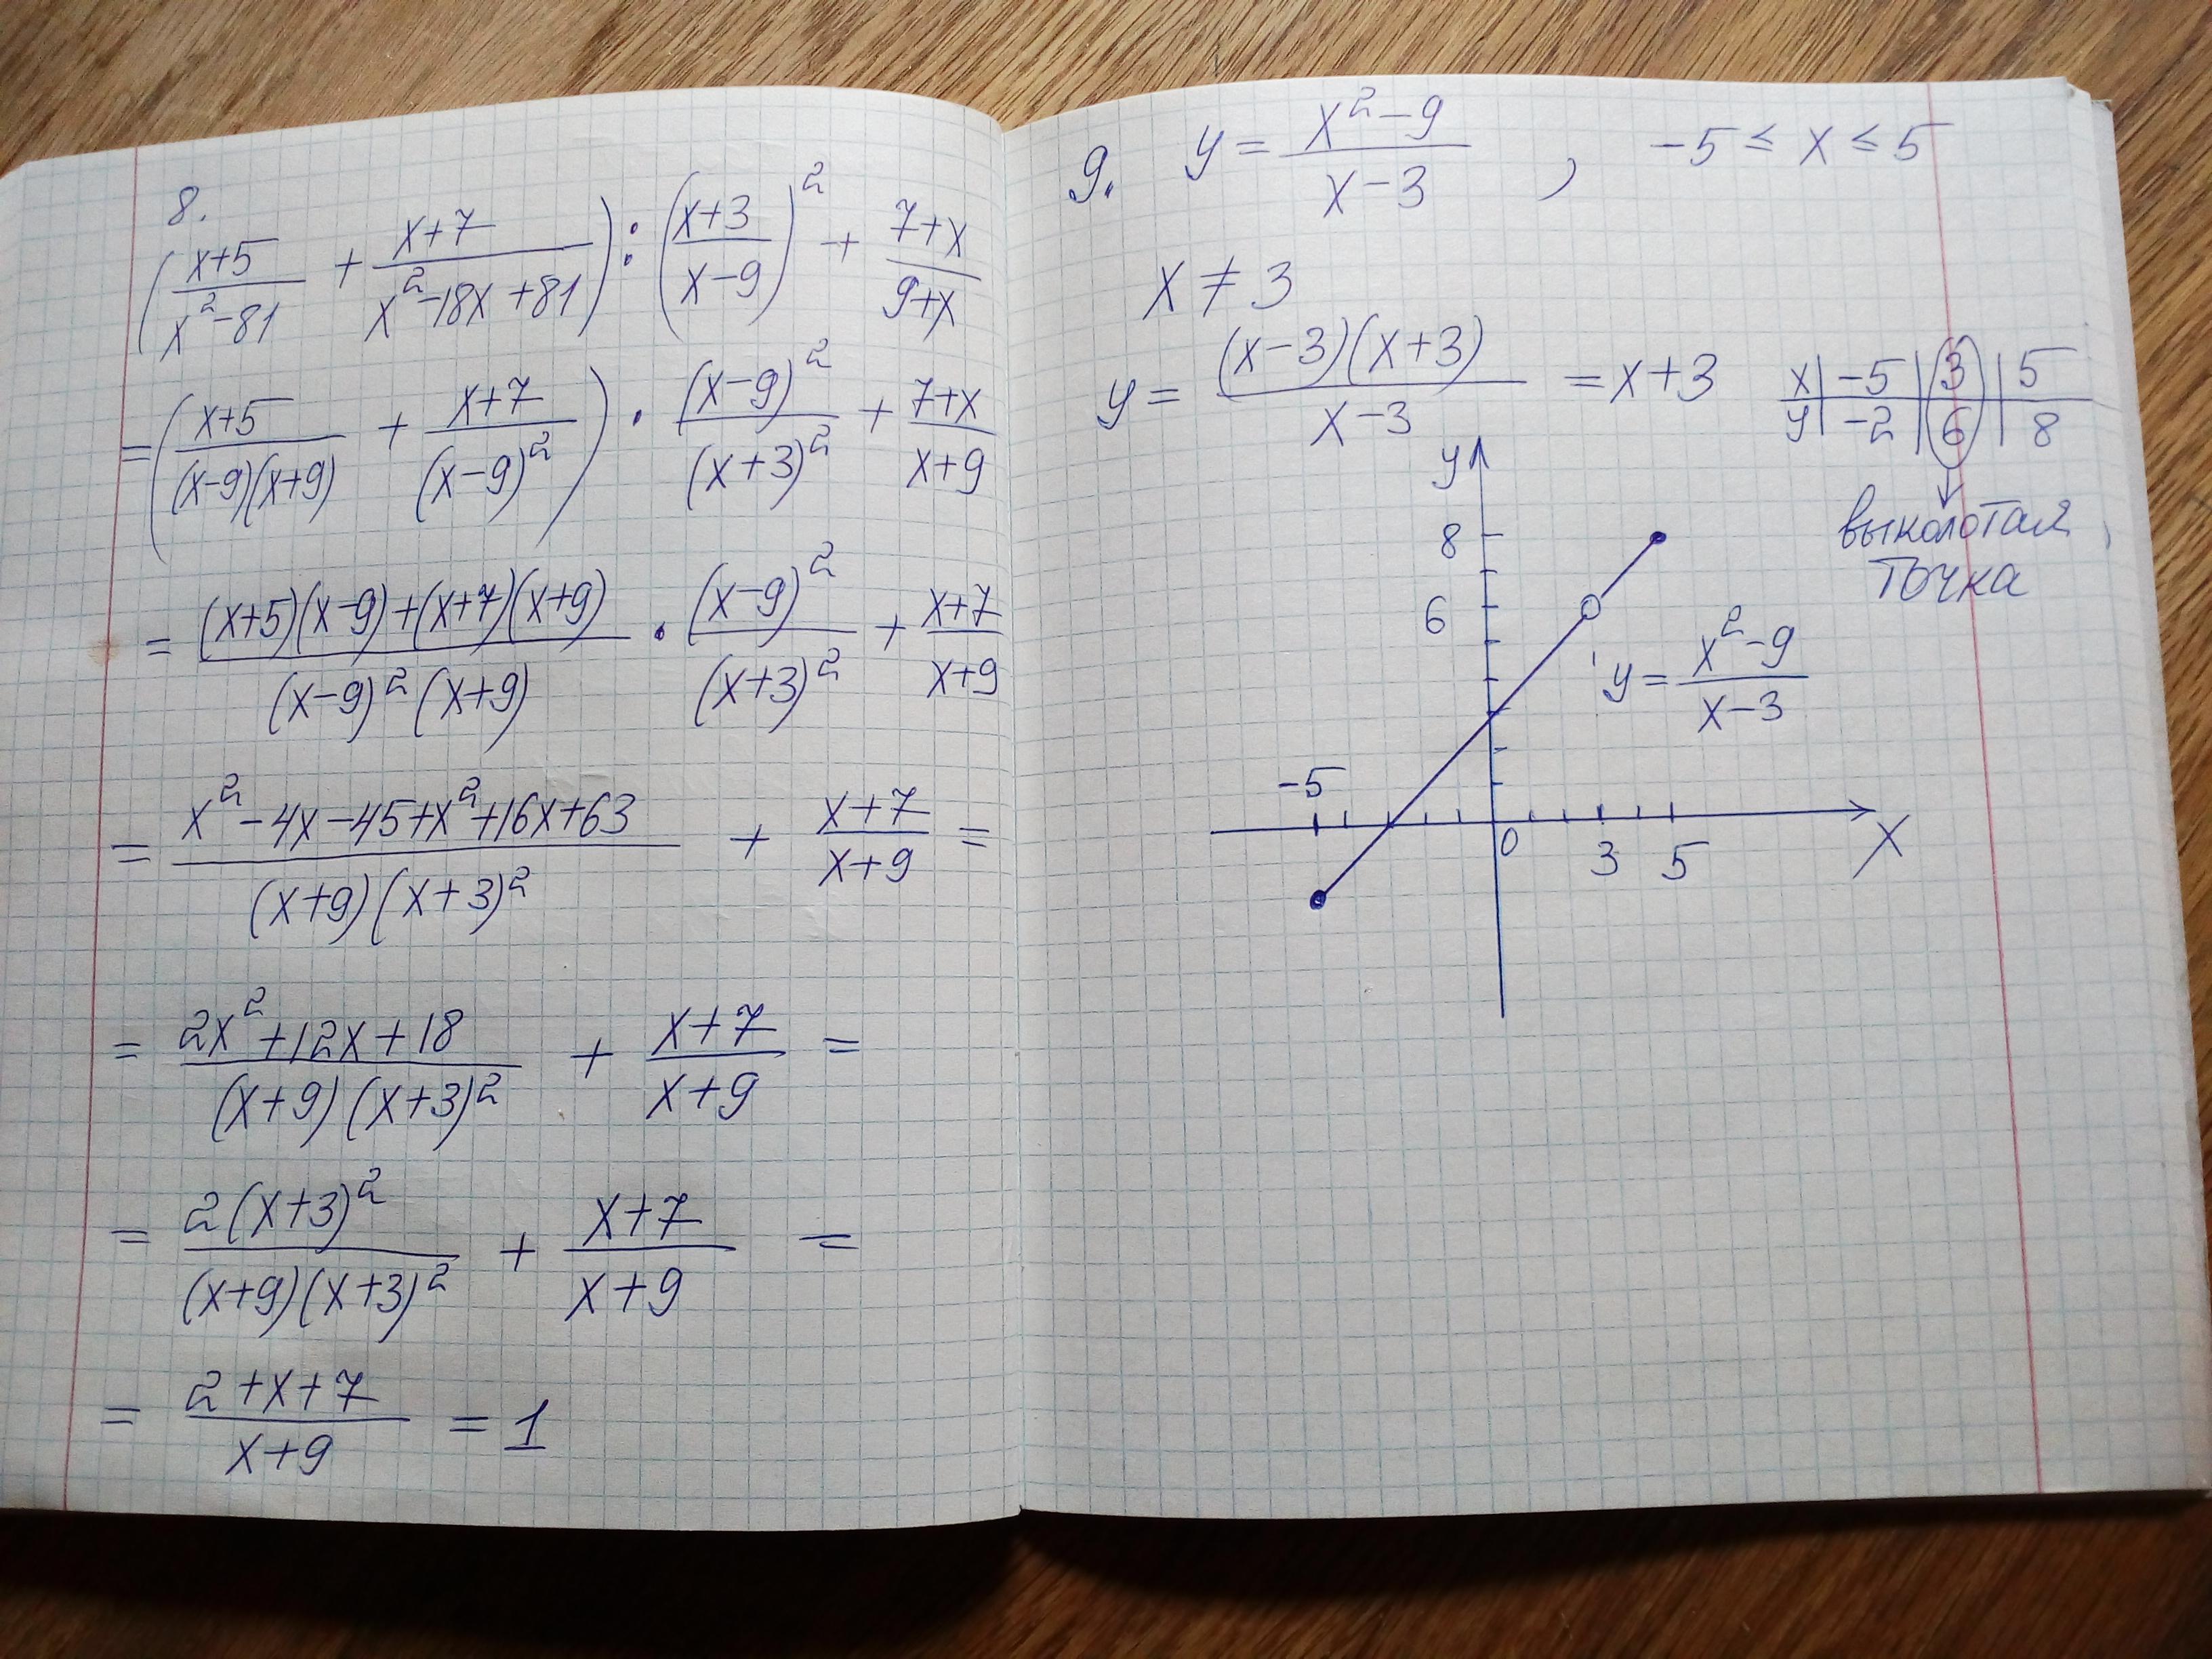 8.
(x+5)/(x²-81) + (x+7)/(x²-18x+81)) : ((x+3)/(x-9))² + (7+x)/(9+x)
=((x+5)/((x-9)(x+9)) + (x+7)/((x-9)²)) · (x-9)²/(x+3)² + (7+x)/(x+9)
= ((x+5)(x-9)+(x+7)(x+9))/((x-9)²(x+9)) · (x-9)²/(x+3)² + (x+7)/(x+9)
= (x²-4x-45+x²+16x+63)/((x+9)(x+3)²) + (x+7)/(x+9) =
= (2x²+12x+18)/((x+9)(x+3)²) + (x+7)/(x+9) =
= 2(x+3)²/((x+9)(x+3)²) + (x+7)/(x+9) =
= (2+x+7)/(x+9) = 1
9. y = (x²-9)/(x-3) , -5 ≤ x ≤ 5
x ≠ 3
y = (x-3)(x+3)/(x-3) = x+3
x | -5 | 3 | 5
y | -2 | 6 | 8
выколотая
точка
y
8
6
y = (x²-9)/(x-3)
-5
0 3 5 x